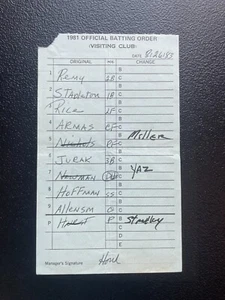 1981 OFFICIAL BATTING ORDER
(VISITING CLUB)
DATE 8/26/83
ORIGINAL POS CHANGE
1 Remy 2B B C
2 Stapleton 1B B C
3 Rice LF B C
4 ARMAS CF B C
5 Nichols RF B C Miller
6 JURAK 3B B C
7 Newman DH B C YAZ
8 HOFFMAN SS B C
9 Allenson C B C
P Hurst P B Stanley
C
D
E
Manager's Signature Houk